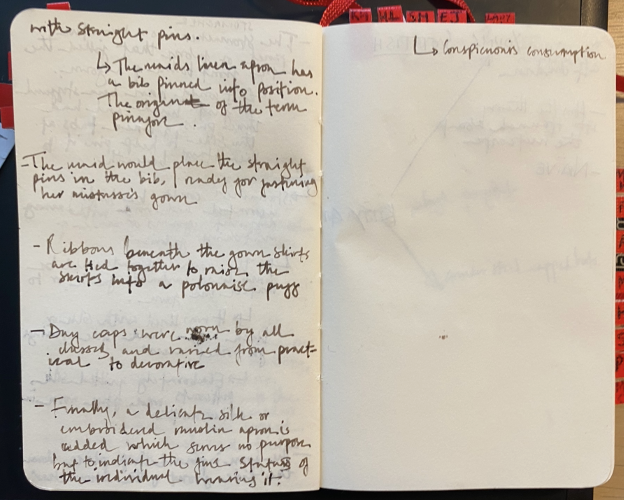 with straight pins.
↳ The maids linen apron has
a bib pinned into position.
The origin of the term
pinafor.
- The maid would place the straight
pins in the bib, ready for fastening
her mistress's gown
- Ribbons beneath the gown skirts
are tied together to raise the
skirts into a polonaise puff
- Day caps were worn by all
classes and varied from pract-
ical to decorative
- Finally, a delicate silk or
embroidered muslin apron is
added which serves no purpose
but to indicate the fine status of
the individual wearing it.
↳ Conspicuous consumption